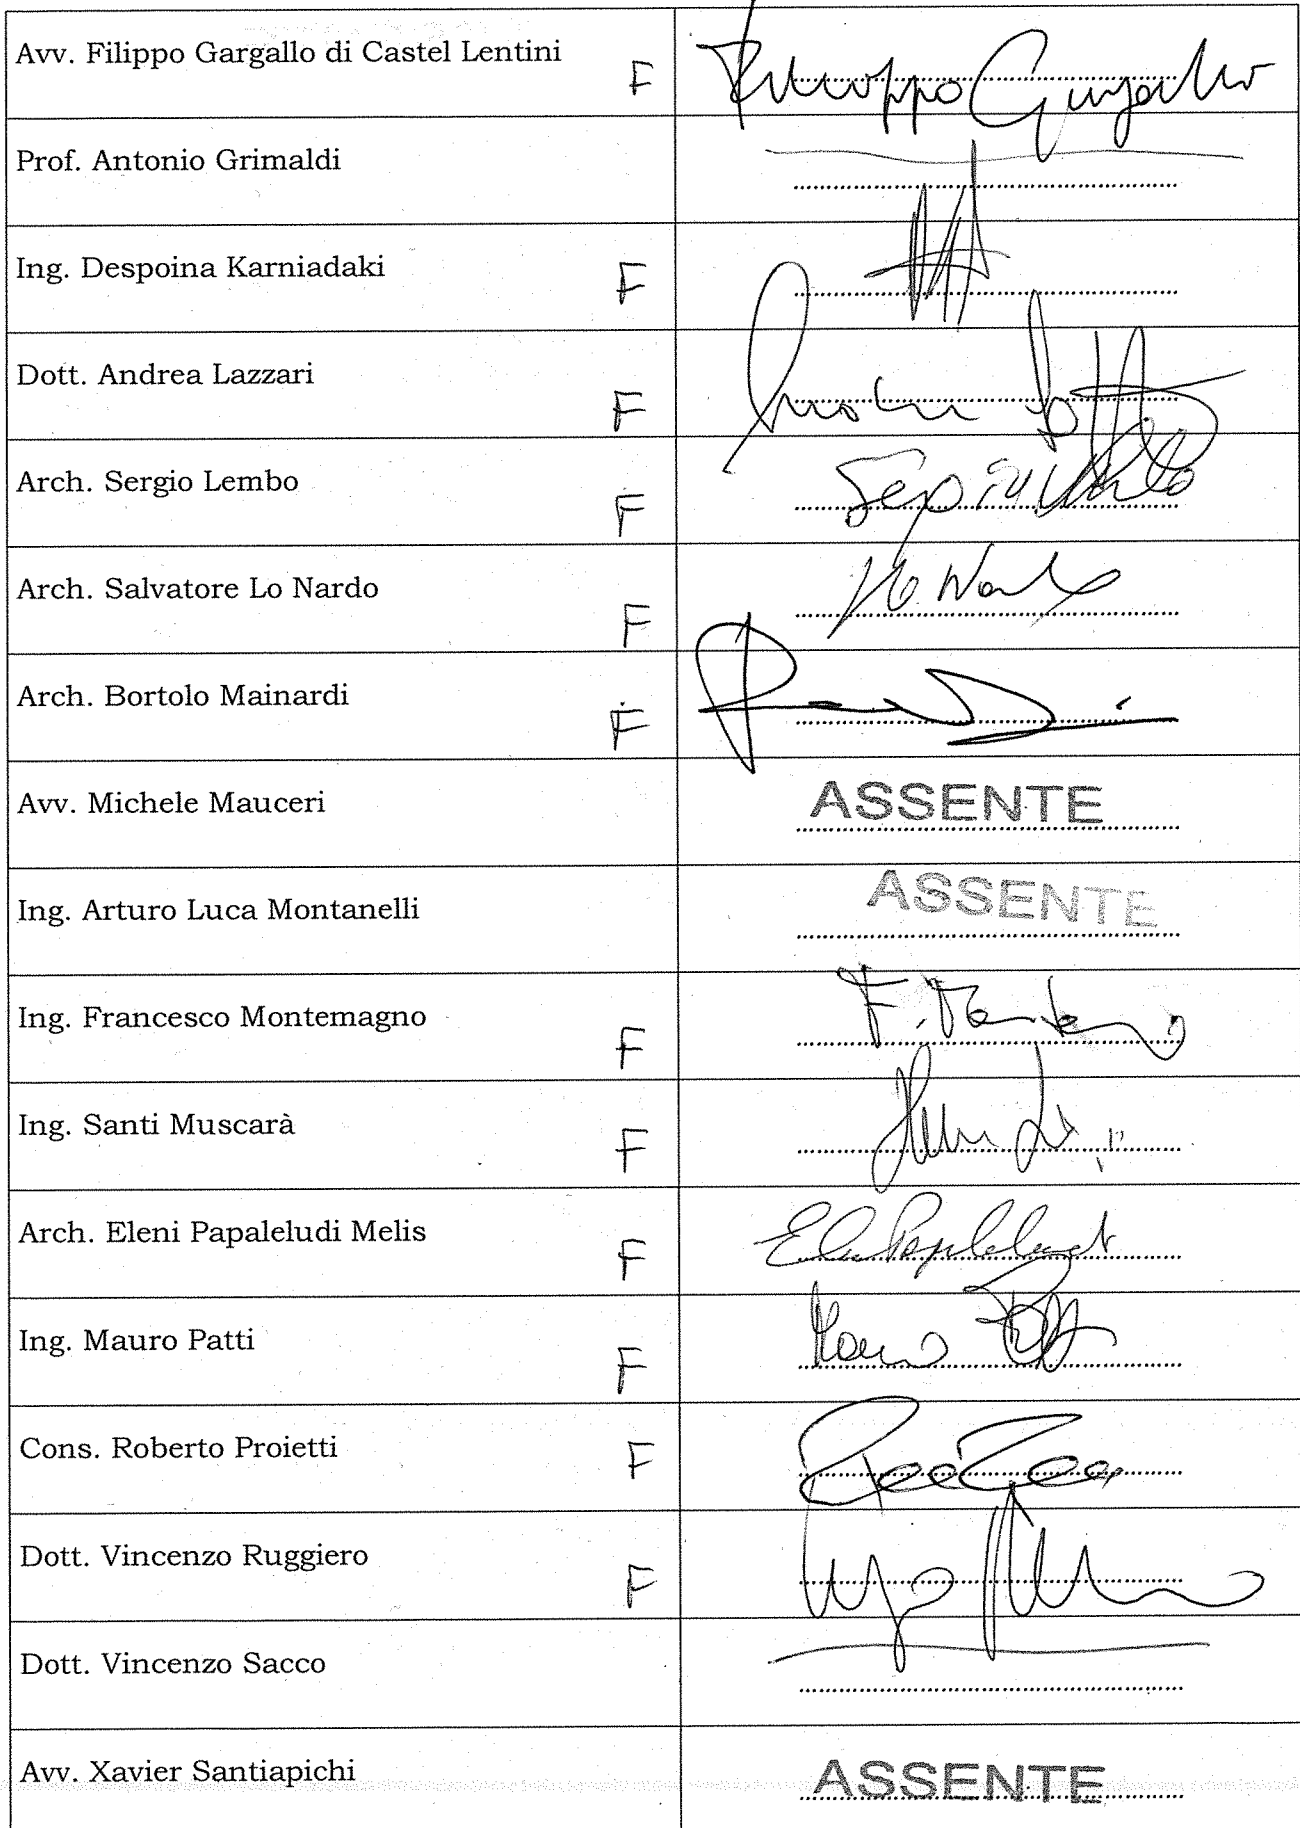 Avv. Filippo Gargallo di Castel Lentini F Filippo Gargallo
Prof. Antonio Grimaldi
Ing. Despoina Karniadaki F
Dott. Andrea Lazzari F
Arch. Sergio Lembo F
Arch. Salvatore Lo Nardo F
Arch. Bortolo Mainardi F
Avv. Michele Mauceri ASSENTE
Ing. Arturo Luca Montanelli ASSENTE
Ing. Francesco Montemagno F
Ing. Santi Muscarà F
Arch. Eleni Papaleludi Melis F
Ing. Mauro Patti F
Cons. Roberto Proietti F
Dott. Vincenzo Ruggiero F
Dott. Vincenzo Sacco
Avv. Xavier Santiapichi ASSENTE